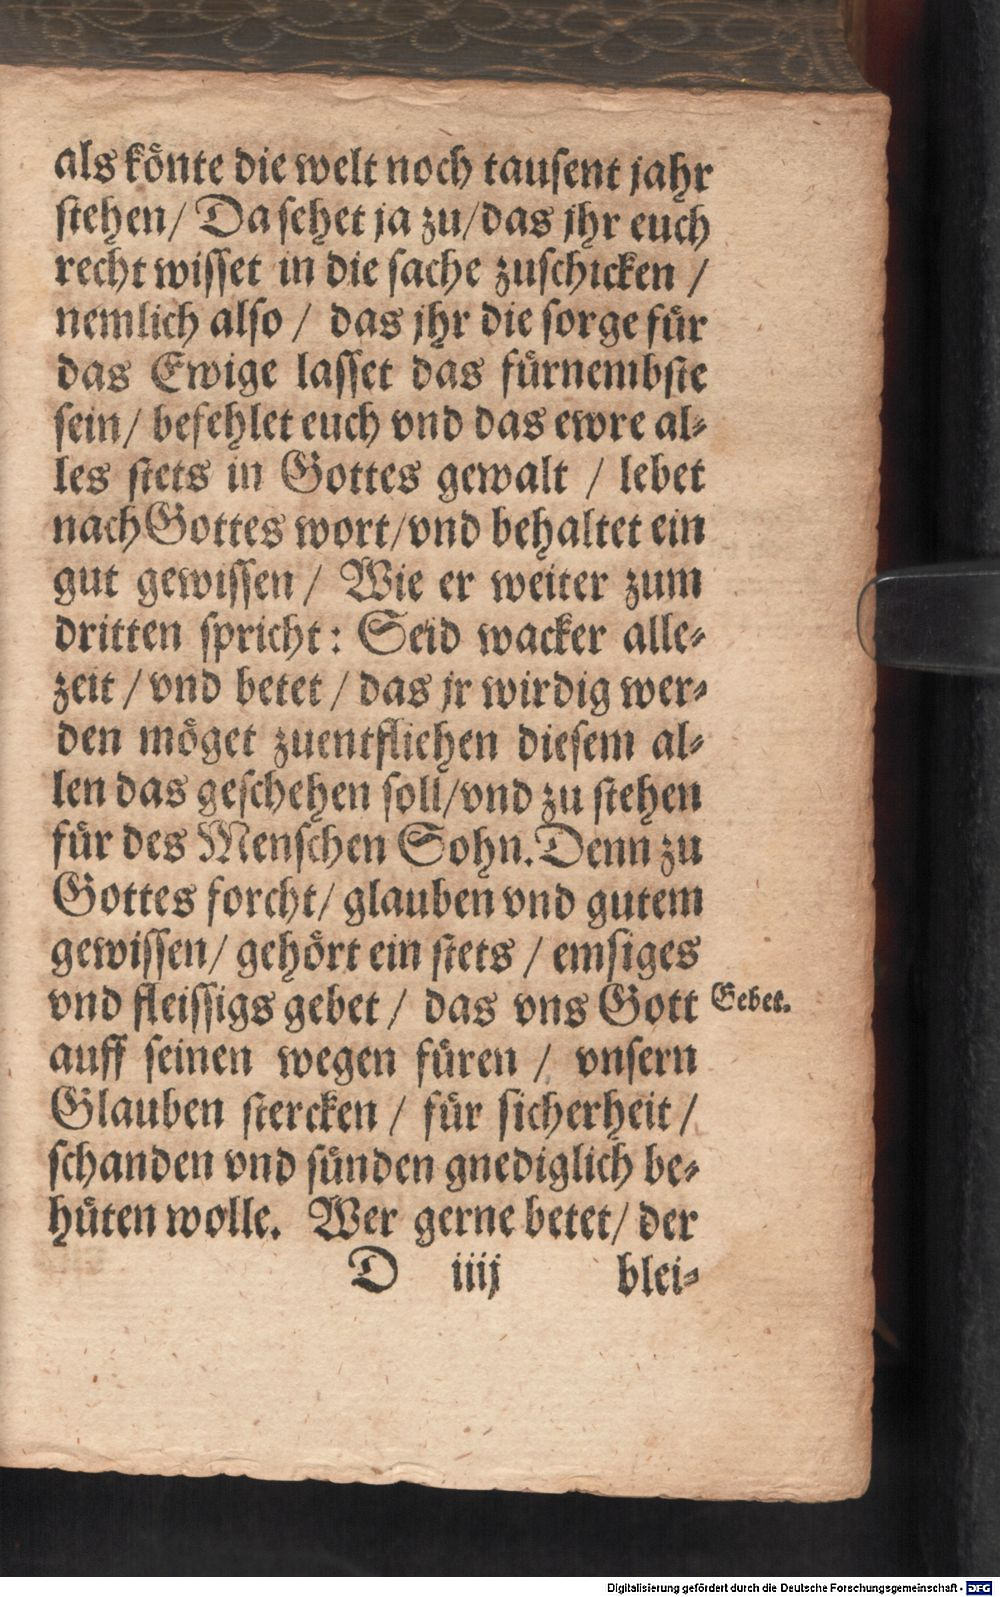 als könte die welt noch tausent jahr
stehen/ Da sehet ja zu/das jhr euch
recht wisset in die sache zuschicken /
nemlich also / das jhr die sorge für
das Ewige lasset das fürnembste
sein/ befehlet euch vnd das ewre al⸗
les stets in Gottes gewalt / lebet
nach Gottes wort/vnd behaltet ein
gut gewissen/ Wie er weiter zum
dritten spricht: Seid wacker alle⸗
zeit / vnd betet / das jr wirdig wer⸗
den möget zuentfliehen diesem al⸗
len das geschehen soll/vnd zu stehen
für des Menschen Sohn. Denn zu
Gottes forcht/ glauben vnd gutem
gewissen/ gehört ein stets / emsiges
vnd fleissigs gebet / das vns Gott
Gebet.
auff seinen wegen füren / vnsern
Glauben stercken / für sicherheit /
schanden vnd sünden gnediglich be⸗
hüten wolle. Wer gerne betet/ der
D iiij blei⸗
Digitalisierung gefördert durch die Deutsche Forschungsgemeinschaft - DFG